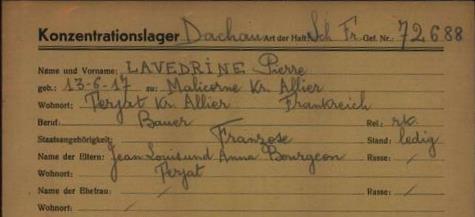 Konzentrationslager Dachau Art der Haft: Sch Fr. Gef. Nr.: 72688
Name und Vorname: LAVEDRINE Pierre
geb.: 13-6-17 zu: Malicorne Kr. Allier
Wohnort: Terjat Kr. Allier Frankreich
Beruf: Bauer Rel.: rk.
Staatsangehörigkeit: Franzose Stand: ledig
Name der Eltern: Jean Louis und Anna Bourgeon Rasse: /
Wohnort: Terjat
Name der Ehefrau: / Rasse: /
Wohnort: /